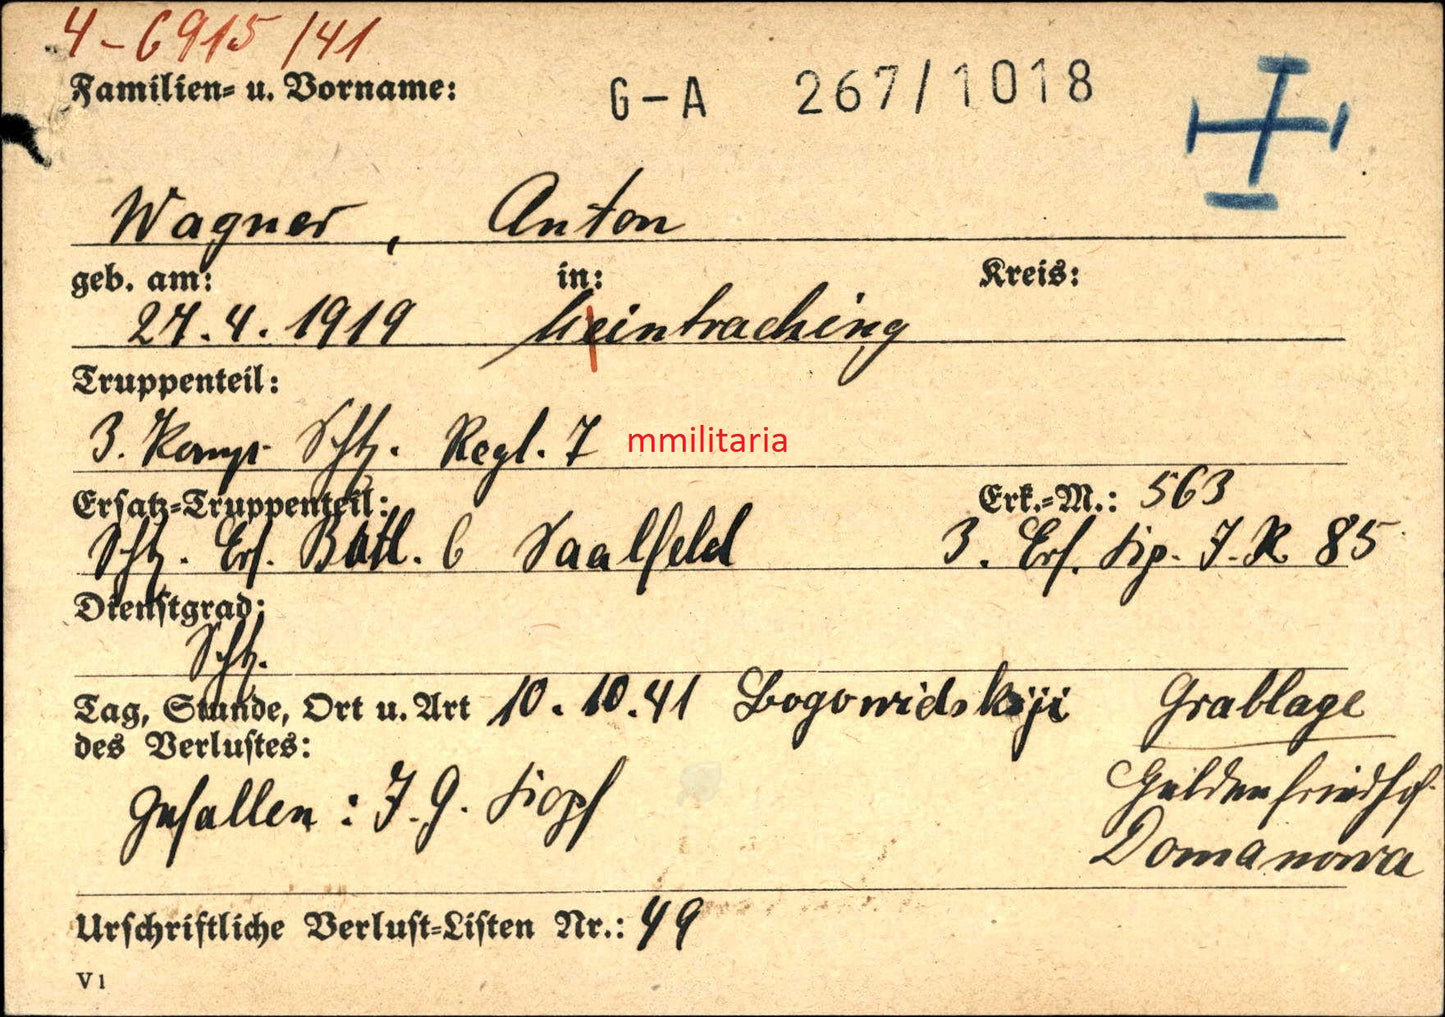 4-6915/41
Familien- u. Vorname:
G-A 267/1018
Wagner, Anton
geb. am: in: Kreis:
27.4.1919 Meintraching
Truppenteil:
3. Komp. Schtz. Regt. 7
mmilitaria
Ersatz-Truppenteil: Erk.-M.: 563
Schtz. Ers. Batl. 6 Saalfeld 3. Ers. Kp. I.R. 85
Dienstgrad:
Schtz.
Tag, Stunde, Ort u. Art des Verlustes: 10.10.41
Grablage
gefallen: I.G. Kopf
Heldenfriedhof
Domanowa
Urschriftliche Verlust-Listen Nr.: 49
V 1